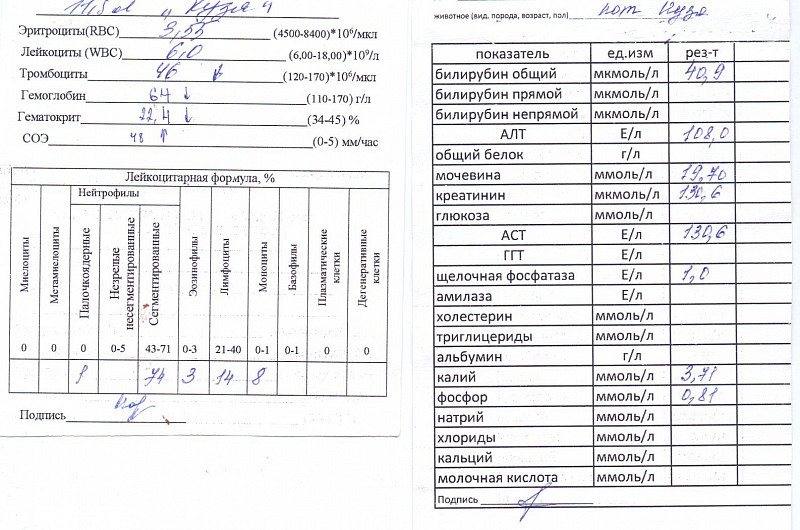 11,5 л "Кузя"
Эритроциты(RBC) 3,55 (4500-8400)*10⁶/мкл
Лейкоциты (WBC) 6,0 (6,00-18,00)*10⁹/л
Тромбоциты 46 ↓ (120-170)*10⁶/мкл
Гемоглобин 64 ↓ (110-170) г/л
Гематокрит 22,4 ↓ (34-45) %
СОЭ 48 ↑ (0-5) мм/час
Лейкоцитарная формула, %
Нейтрофилы
Миелоциты Метамиелоциты Палочкоядерные Незрелые несегментированные Сегментированные Эозинофилы Лимфоциты Моноциты Базофилы Плазматические клетки Дегенеративные клетки
0 0 0 0-5 43-71 0-3 21-40 0-1 0-1 0 0
1 74 3 14 8
Подпись
животное (вид, порода, возраст, пол) кот Кузя
показатель ед.изм рез-т
билирубин общий мкмоль/л 40,9
билирубин прямой мкмоль/л
билирубин непрямой мкмоль/л
АЛТ Е/л 108,0
общий белок г/л
мочевина ммоль/л 19,70
креатинин мкмоль/л 130,6
глюкоза ммоль/л
АСТ Е/л 130,6
ГГТ Е/л
щелочная фосфатаза Е/л 1,0
амилаза Е/л
холестерин ммоль/л
триглицериды ммоль/л
альбумин г/л
калий ммоль/л 3,71
фосфор ммоль/л 0,81
натрий ммоль/л
хлориды ммоль/л
кальций ммоль/л
молочная кислота ммоль/л
Подпись